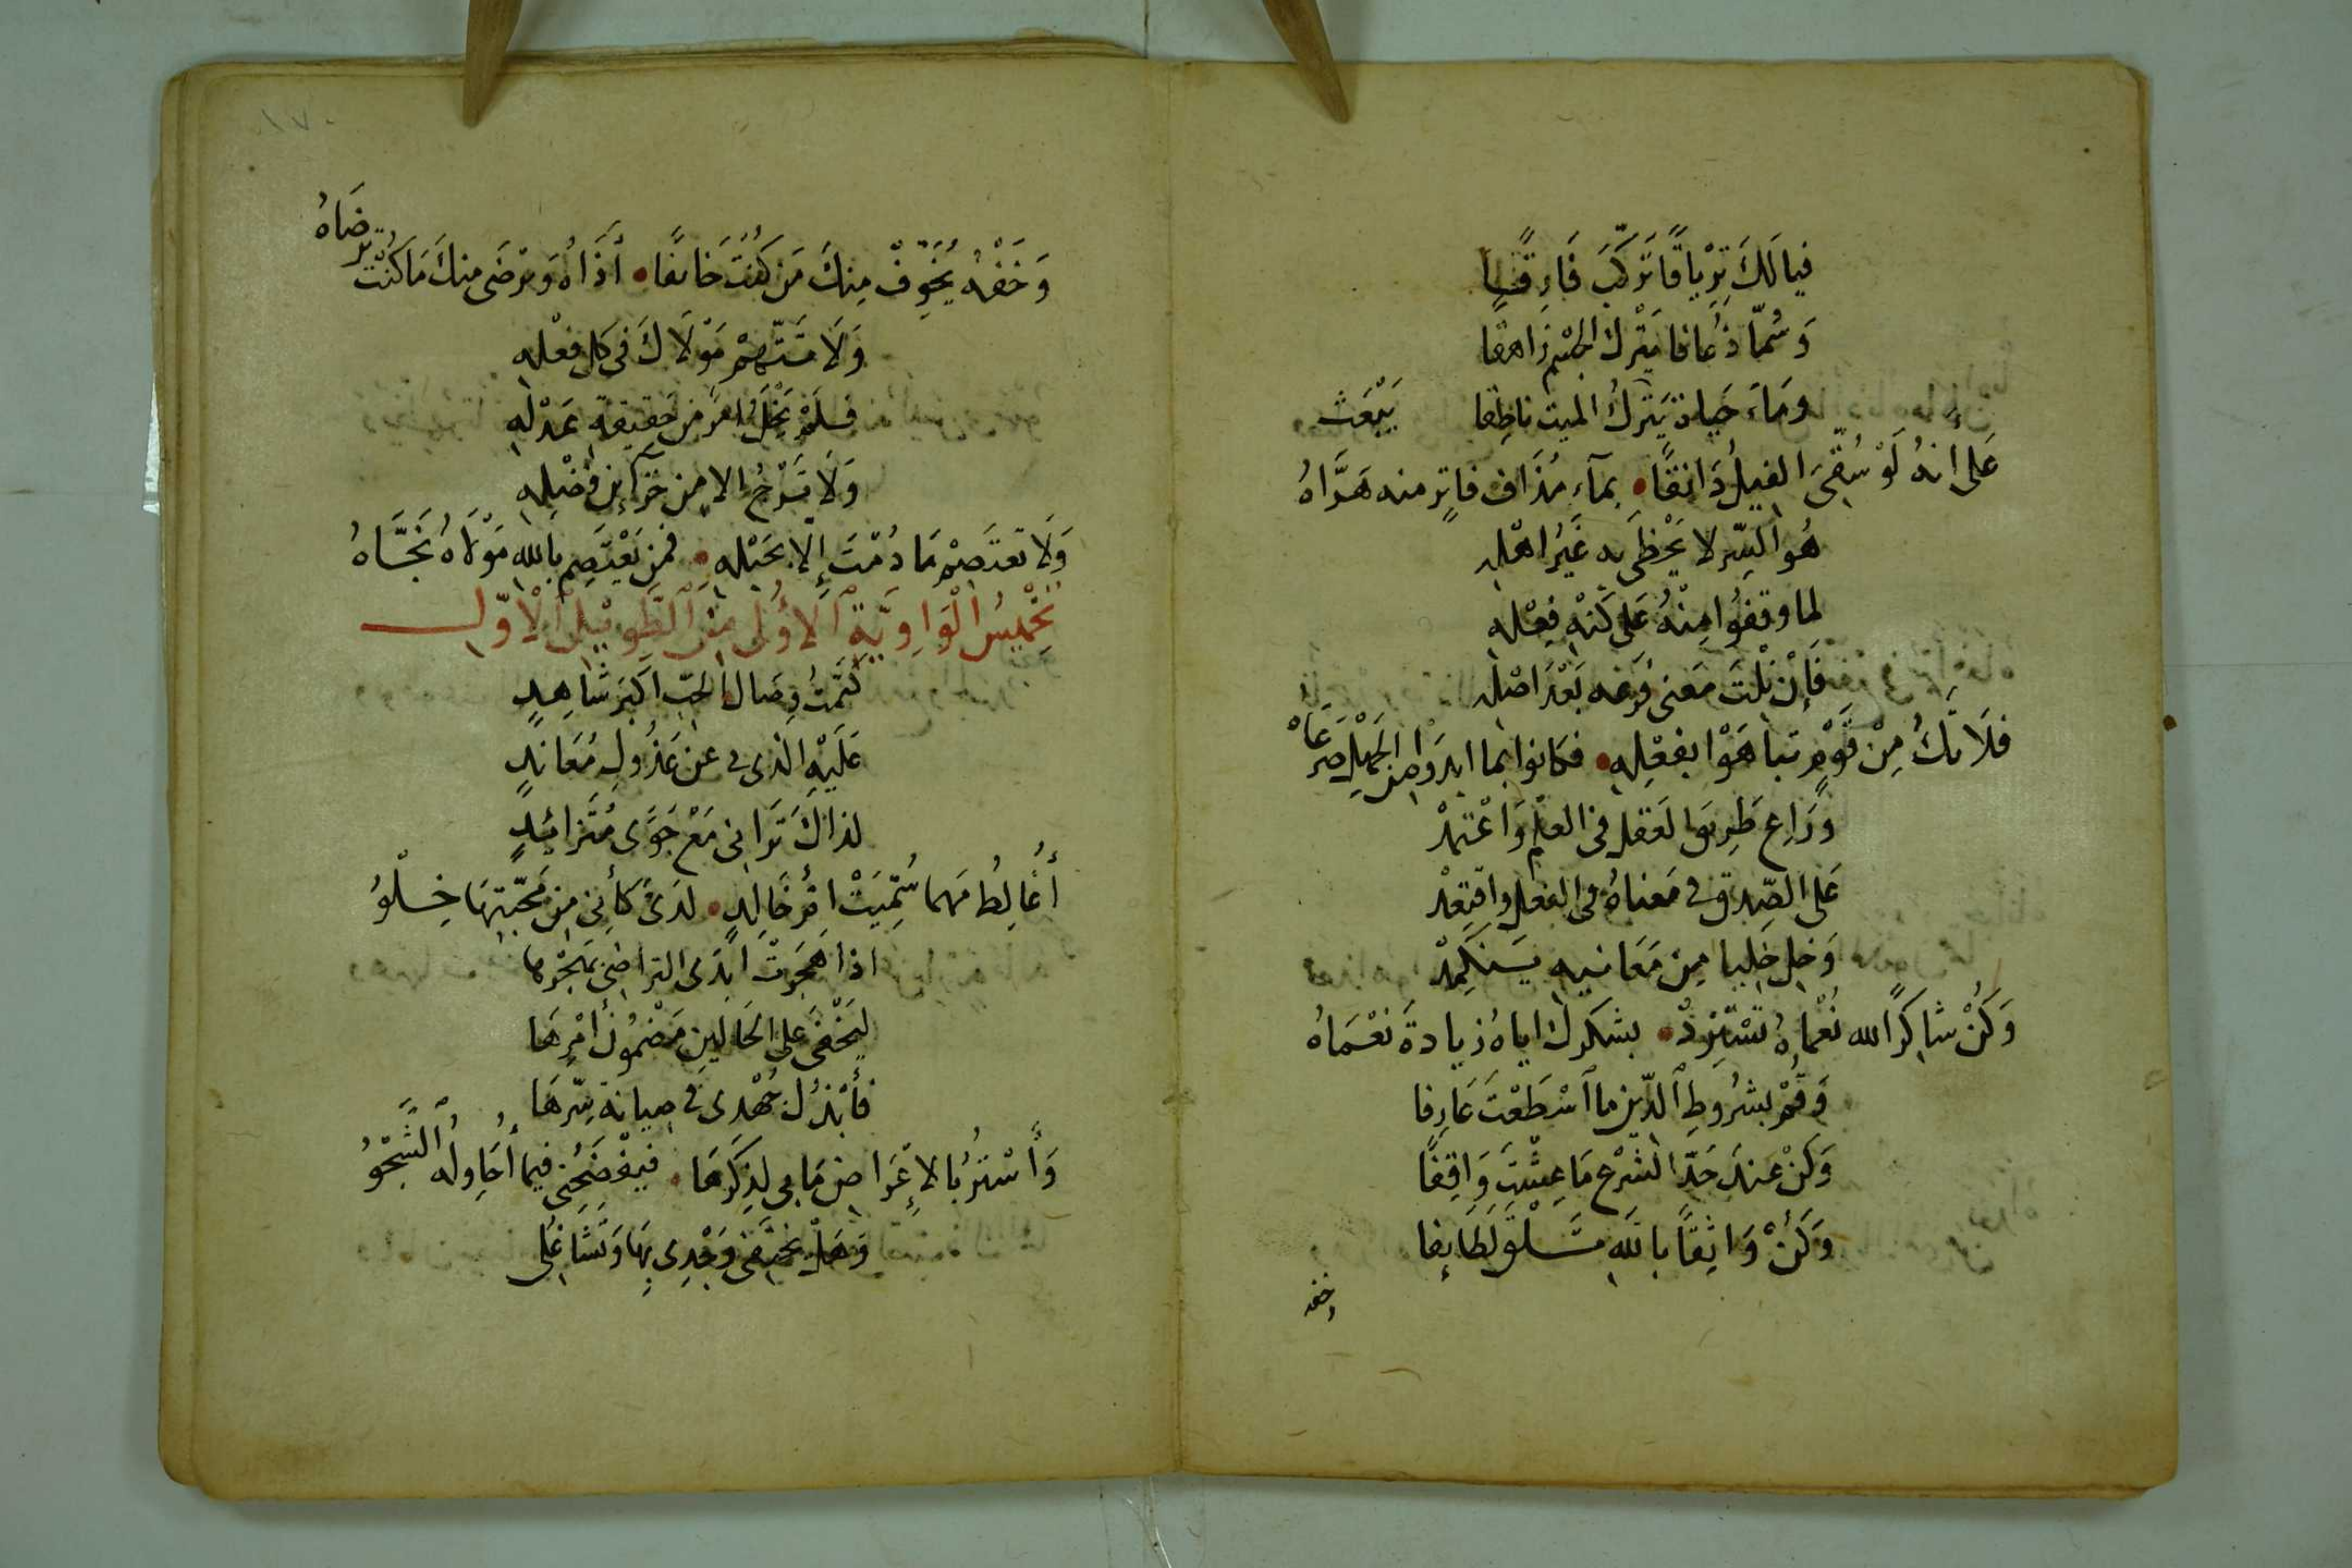 فيالَكَ تِرْيَاقًا تَرَكَّبَ فَارِقًا
وَسُمًّا ذُعَافا يَتْرك الجسْم زَاهقا
ومَاءَ حَياة يَترك الميت ناطِقا يَبْعَث
عَلى أنهُ لَوْ سُقّىَ الفيلُ دَانقًا بمآء مُذَاف فاتِرٍ منه هَرَّاهُ
هُو السِّر لا يَحْظَى به غَيرُ اهْلِه
لما وقفُوا مِنْهُ عَلى كَنْهِ فِعْلِه
فَإن نلْتَ مَعنى فرعه بَعْدَ اصْلِه
فلَا تَكُ مِنْ قَوْمٍ تباهَوْا بفعْلِه فكانوا بما ابدَوا من الجَهْلِ صَرعَاهْ
وَرَاعِ طَرِيق العَقل فى العلْم وَاعْتمدْ
عَلى الصِّدق فى مَعناهُ فى الفعل واقتصدْ
وَخل خليا من مَعَانيه يَسْتَكمِدْ
وَكُنْ شاكِرًا لله نُعْمَاهُ تَسْتَزِدْ بشكرك اياهُ زيادةَ نعْمَاهُ
وَقُمْ بشرُوطِ الدّين ما اسْطَعْتَ عَارِفا
وَكنْ عِندَ حَدّ الشرْع مَا عِشْتَ وَاقِفًا
وَكُنْ وَاثِقًا بالله تَلْقَ لَطَايِفا
وَخفه
وَخَفْهُ يُخَوِّفْ مِنكَ مَن كُنْتَ خَائفًا أذَاهُ وَيرْضَى منكَ مَا كُنْتَ تَرضَاهُ
وَلَا تَتّهمْ مَوْلَاكَ فى كل فعْله
فلَمْ يَخْلُ امرٌ من حَقِيقة عَدْلِه
وَلَا تَرْجُ الا مِن خَزآين فَضْلِه
وَلَا تعتَصِمْ مَا دُمْتَ إلا بحَبْله فمن يَعْتَصِم بالله مَوْلَاهُ نَجَّاهُ
تَخْمِيسُ الْوَاوِيَّةِ الأوُلَى مِنَ الطَّوِيْلِ الْأوّل
كتَمْتُ وِصَال الحبّ اكبَرَ شَاهِدٍ
عَلَيْهِ الذى بى عن عَذُولٍ مُعَاندٍ
لذاكَ تَرَانى مَعْ جَوًى مُتَزائدٍ
أُغَالِطُ مَهما سُمِّيَتْ امُّ خَالِدٍ لدَىَّ كأنى من مَحَبّتِهَا خِلْوُ
اذا هَجَرَتْ ابْدَى التراضى بهَجْرها
ليَخْفَى عَلى الحَالينِ مَضْمُونُ أمْرِهَا
فأبْذُلُ جُهْدِى فى صِيانة سِّرهَا
وَأسْتُرُ بالإعْرَاض مَا بى لذِكرِهَا فيَفْضَحُنى فيما أُحَاوِلُه الشَّجْوُ
وَهَلْ يختفى وَجْدِى بِهَا وَتَشَاغُلى